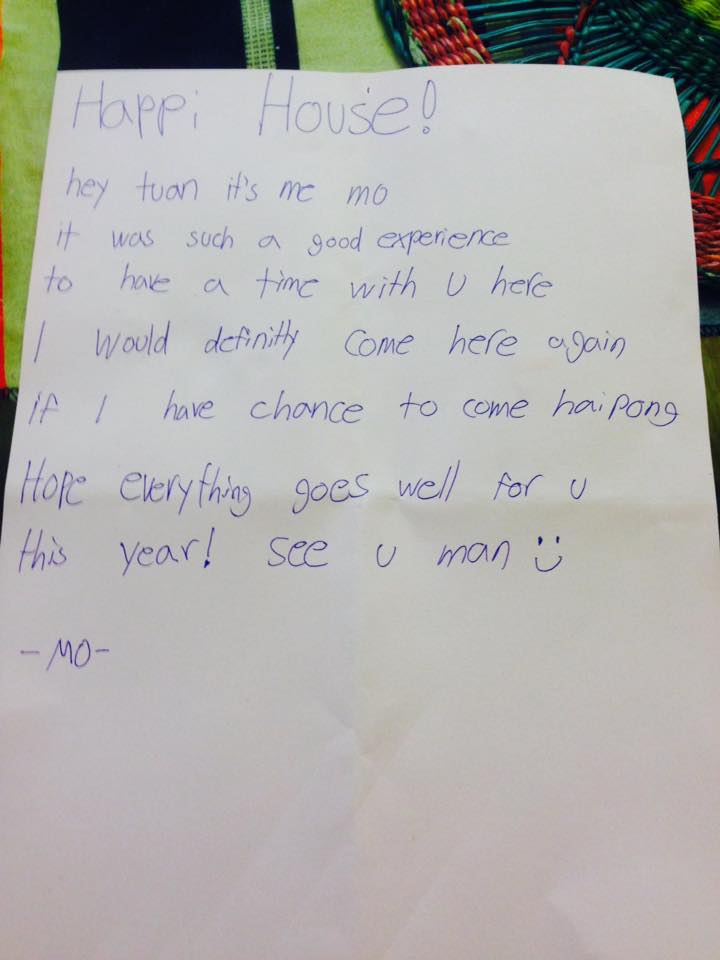 Happi House!
hey tuan it's me mo
it was such a good experience
to have a time with U here
I would definitly come here again
if I have chance to come haipong
Hope everything goes well for u
this year! see u man
-MO-